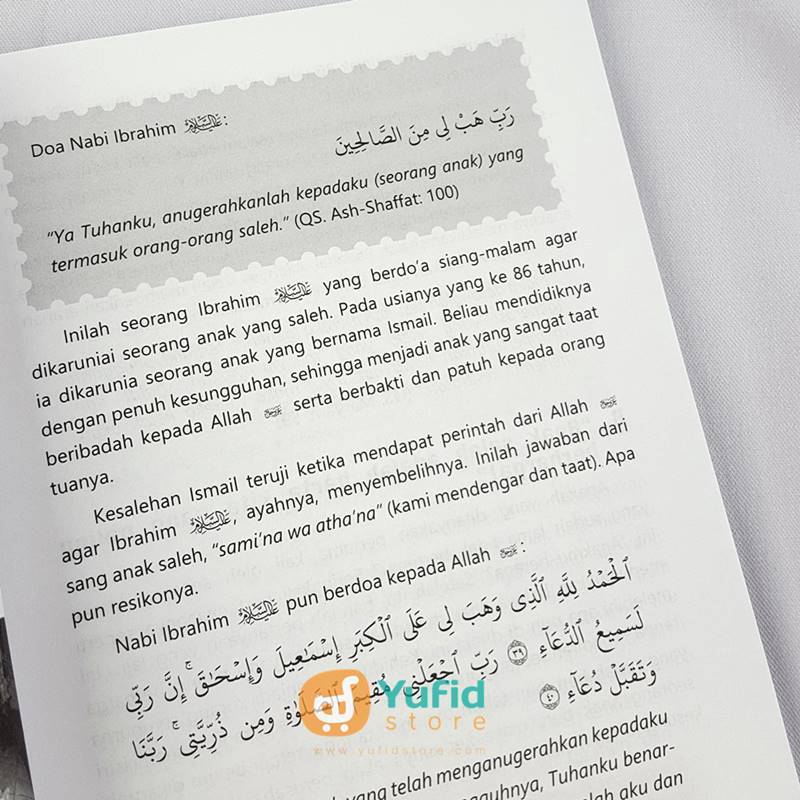 Doa Nabi Ibrahim عليه السلام:
رَبِّ هَبْ لِي مِنَ الصَّالِحِينَ
"Ya Tuhanku, anugerahkanlah kepadaku (seorang anak) yang
termasuk orang-orang saleh." (QS. Ash-Shaffat: 100)
Inilah seorang Ibrahim عليه السلام yang berdo'a siang-malam agar
dikaruniai seorang anak yang saleh. Pada usianya yang ke 86 tahun,
ia dikarunia seorang anak yang bernama Ismail. Beliau mendidiknya
dengan penuh kesungguhan, sehingga menjadi anak yang sangat taat
beribadah kepada Allah serta berbakti dan patuh kepada orang
tuanya.
Kesalehan Ismail teruji ketika mendapat perintah dari Allah
agar Ibrahim عليه السلام, ayahnya, menyembelihnya. Inilah jawaban dari
sang anak saleh, "sami'na wa atha'na" (kami mendengar dan taat). Apa
pun resikonya.
Nabi Ibrahim عليه السلام pun berdoa kepada Allah :
ٱلْحَمْدُ لِلَّهِ ٱلَّذِى وَهَبَ لِى عَلَى ٱلْكِبَرِ إِسْمَٰعِيلَ وَإِسْحَٰقَ ۚ إِنَّ رَبِّى
لَسَمِيعُ ٱلدُّعَآءِ ٣٩ رَبِّ ٱجْعَلْنِى مُقِيمَ ٱلصَّلَوٰةِ وَمِن ذُرِّيَّتِى ۚ رَبَّنَا
وَتَقَبَّلْ دُعَآءِ ٤٠
Yufid
store
www.yufidstore.com
yang telah menganugerahkan kepadaku
Tuhanku benar-
aku dan